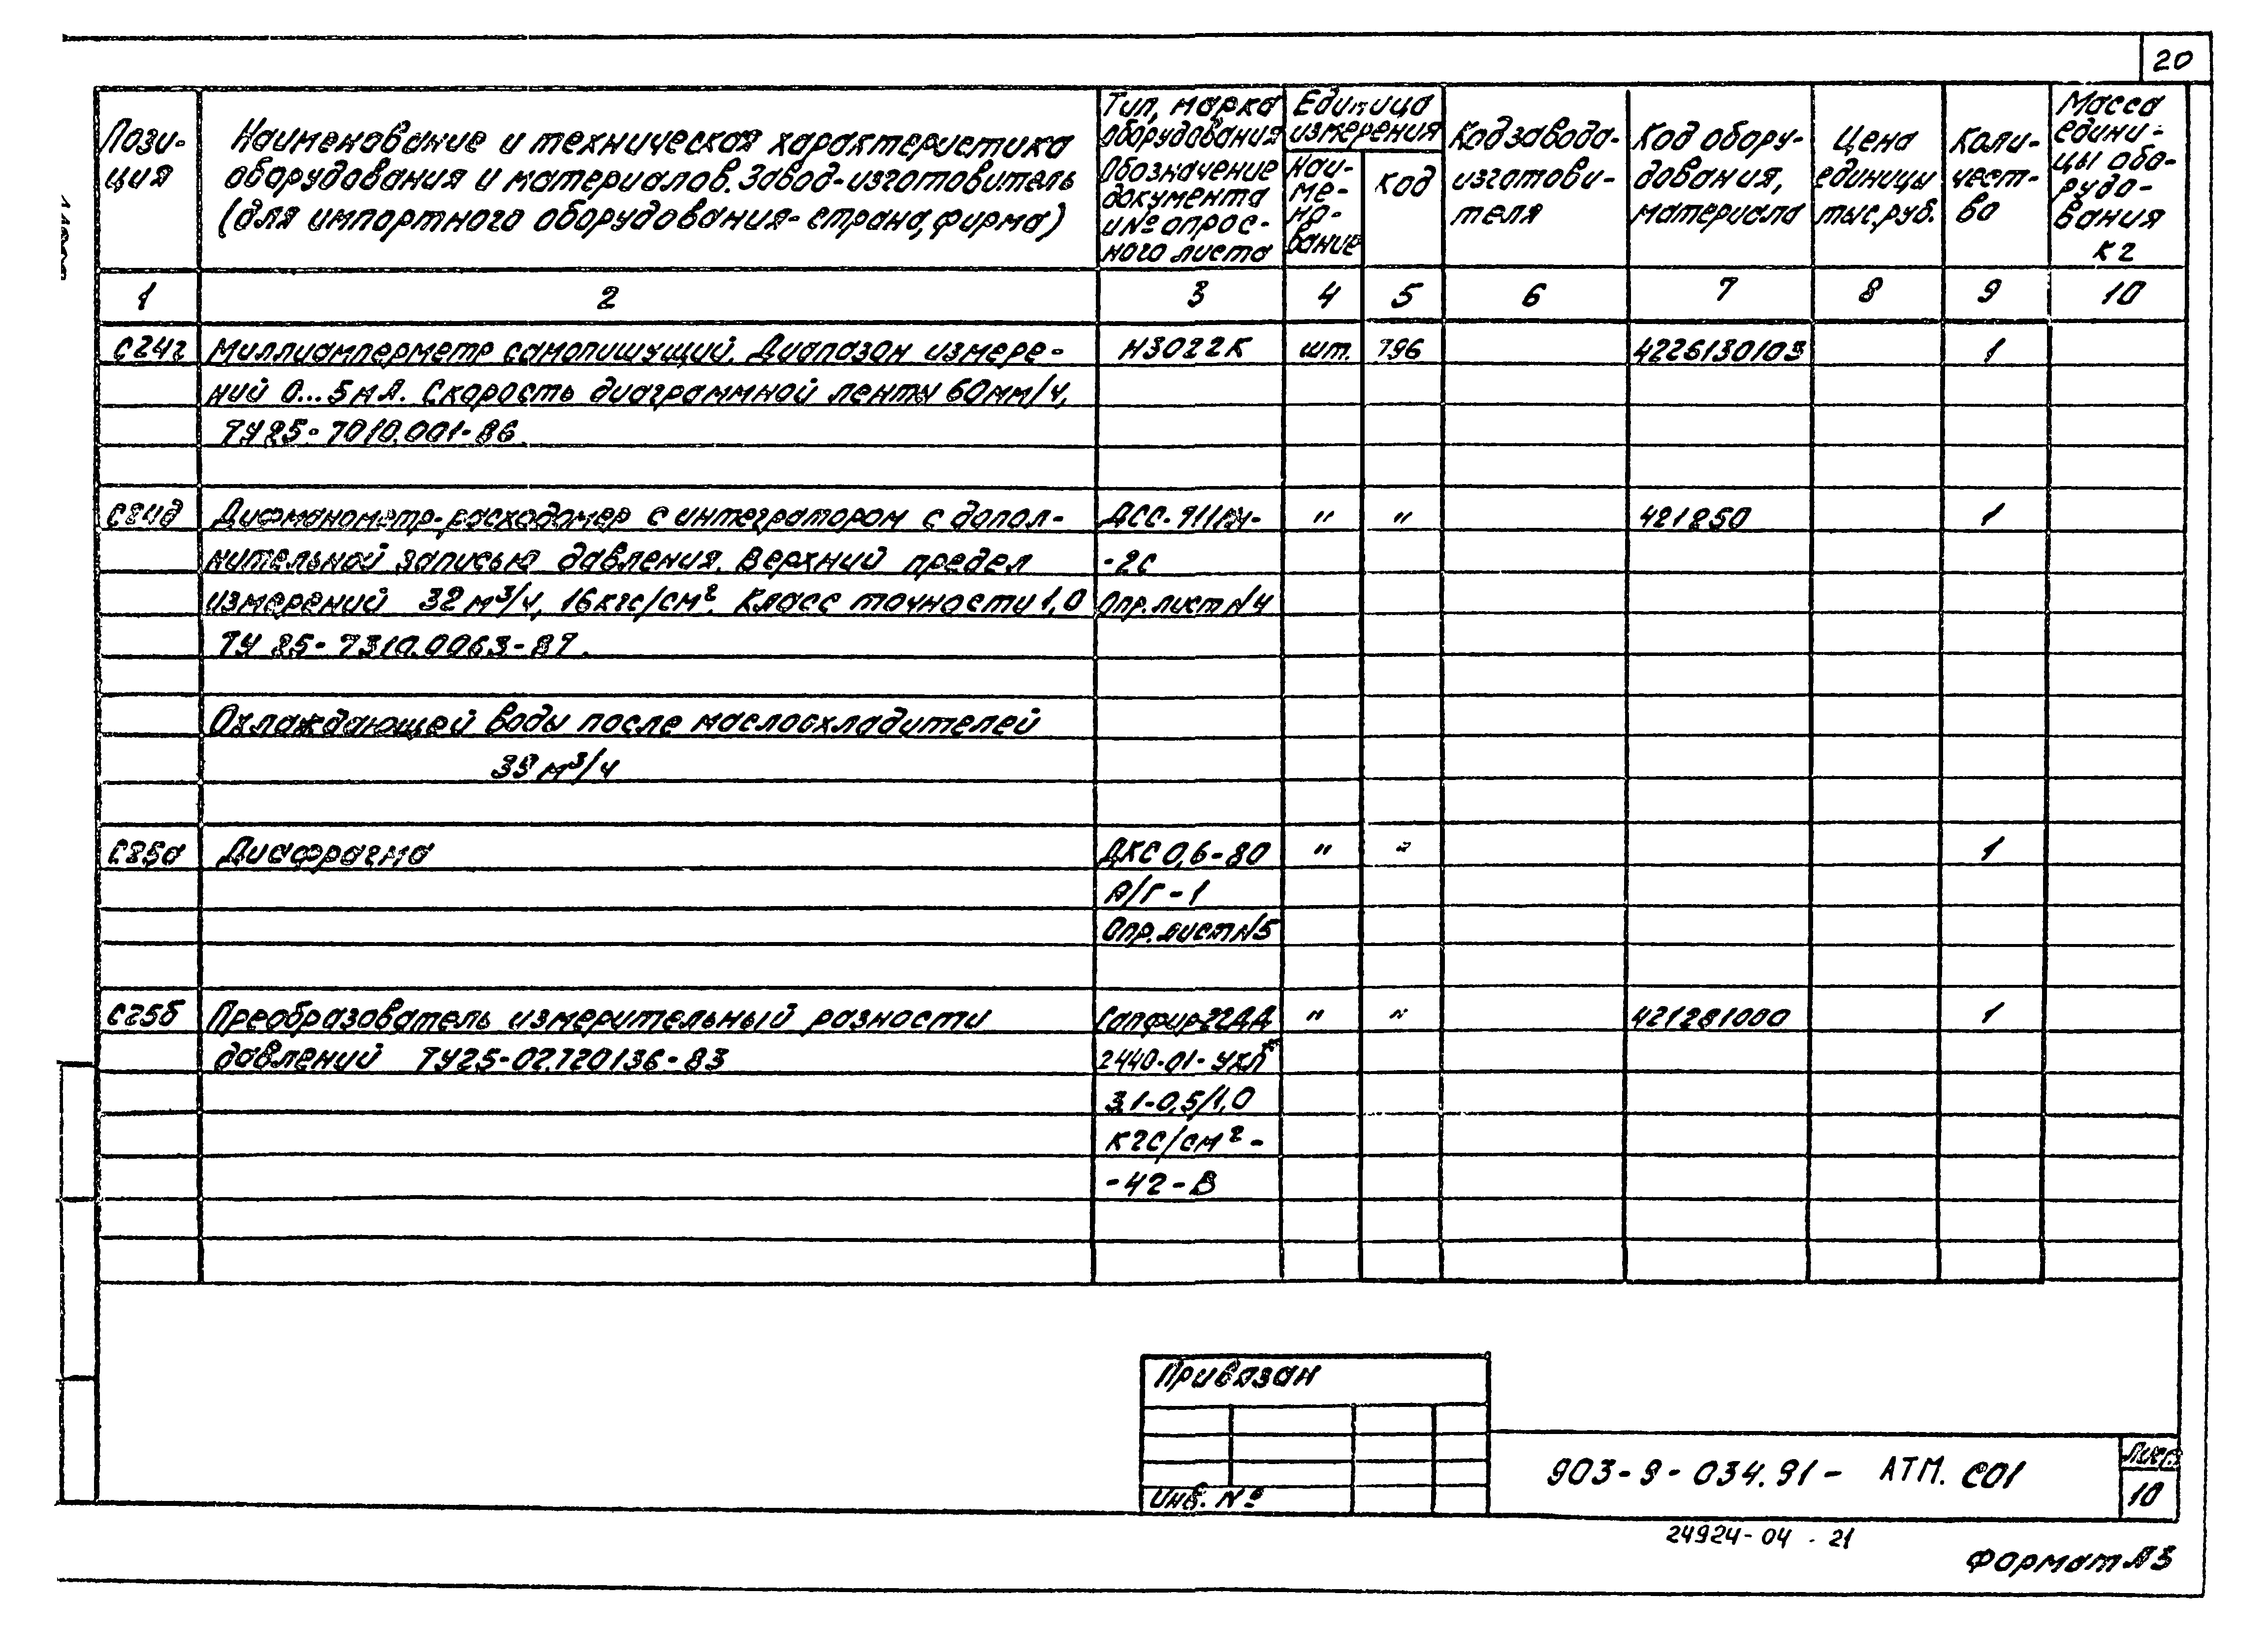 20
Пози-
ция
Наименование и техническая характеристика
оборудования и материалов. Завод-изготовитель
(для импортного оборудования-страна, фирма)
Тип, марка
оборудования
Обозначение
документа
и № опрос-
ного листа
Единица
измерения
Наи-
ме-
но-
вание
код
Код завода-
изготови-
теля
Код обору-
дования,
материала
Цена
единицы
тыс.руб.
Коли-
чест-
во
Масса
едини-
цы обо-
рудо-
вания
кг
1 2 3 4 5 6 7 8 9 10
С24г Миллиамперметр самопишущий. Диапазон измере- Н3022К шт. 796 4226130103 1
ний 0...5мА. Скорость диаграммной ленты 60мм/ч,
ТУ25-7010.001-86
С24д Дифманометр-расходомер с интегратором с допол- " " 421250 1
нительной записью давления. Верхний предел -2с
измерений 32 м³/ч, 16кгс/см². Класс точности 1,0 Опр.лист N4
ТУ 25-7310.0063-87.
Охлаждающей воды после маслоохладителей
39 м³/ч
С25а Диафрагма ДКС 0,6-80 " " 1
А/Г-1
Опр.лист N5
С25б Преобразователь измерительный разности Сапфир-22ДД " " 421281000 1
давлений ТУ25-02.720136-83 2440-01-УХЛ*
3.1-0,5/1,0
кгс/см²-
-42-В
Привязан
Инв. №
903-9-034.91- АТМ. С01
Лист
10
24924-04 . 21
Формат А3